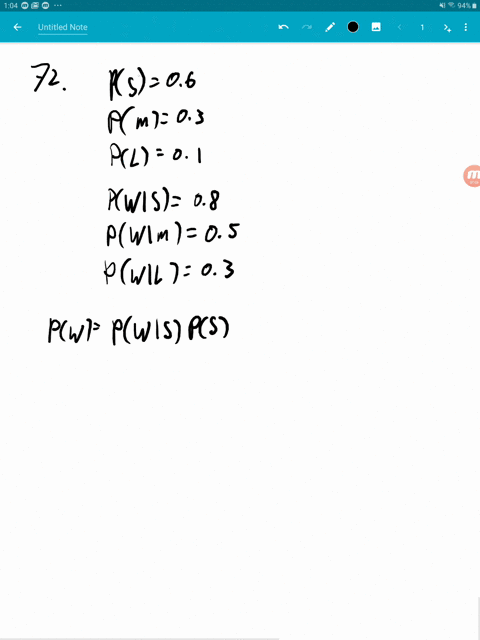 1:04 94%
Untitled Note 1
72. P(S)=0.6
P(m)=0.3
P(L)=0.1
P(W|S)=0.8
P(W|m)=0.5
P(W|L)=0.3
P(W)=P(W|S)P(S)